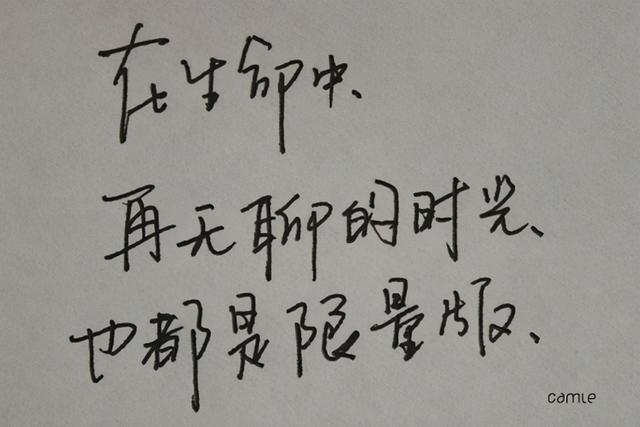 在生命中、
再无聊的时光、
也都是限量版、
camle